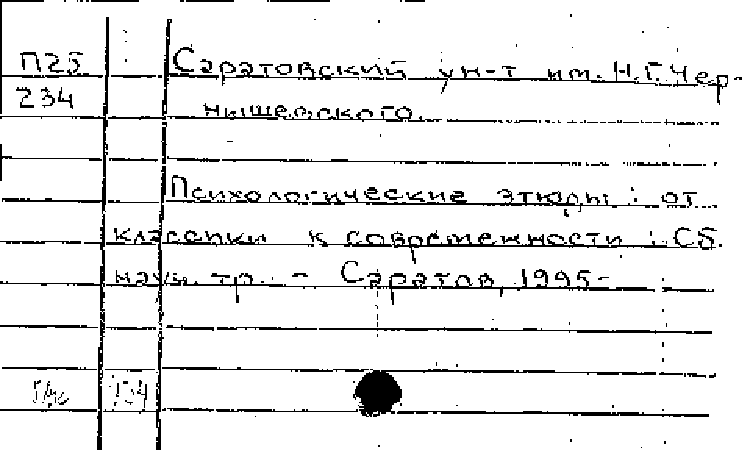 П25 Саратовский ун-т им. Н.Г. Чер-
234 нышевского.
Психологические этюды : от
классики к современности : Сб.
научн. тр. - Саратов, 1995-